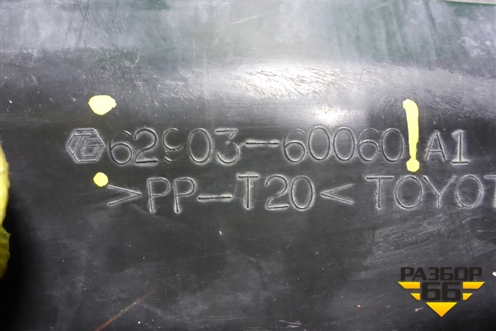 TG 62903-60060 A1
>PP-T20< TOYOT
РАЗБОР
66